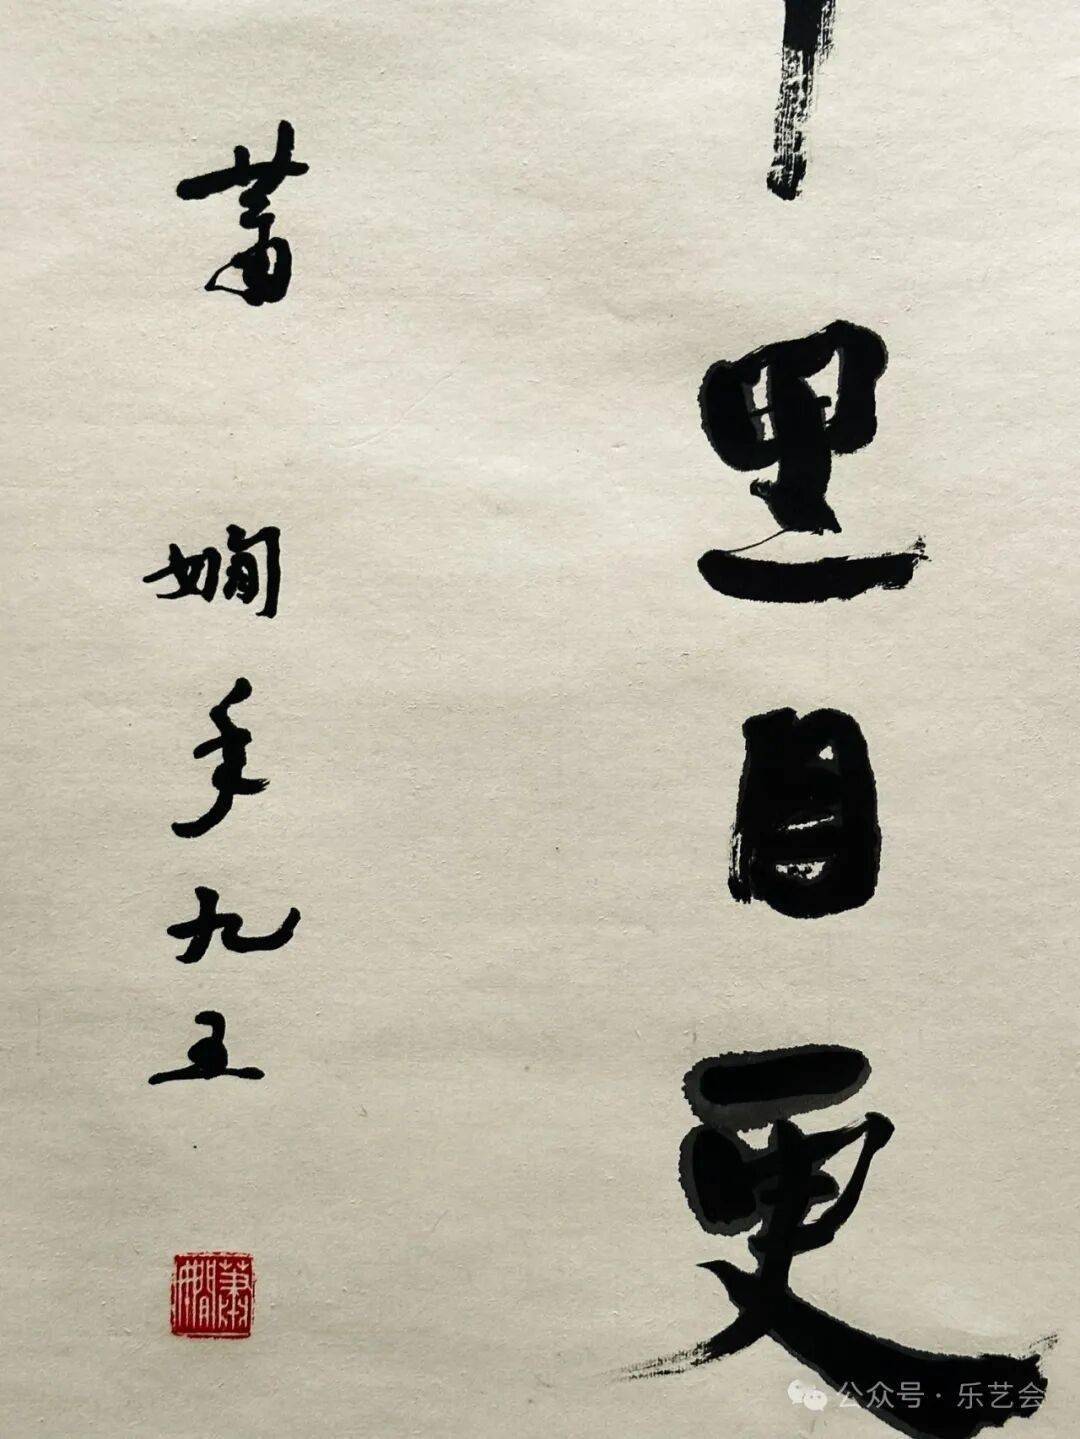 里目更
萧娴年九五
蕭嫻
公众号 · 乐艺会